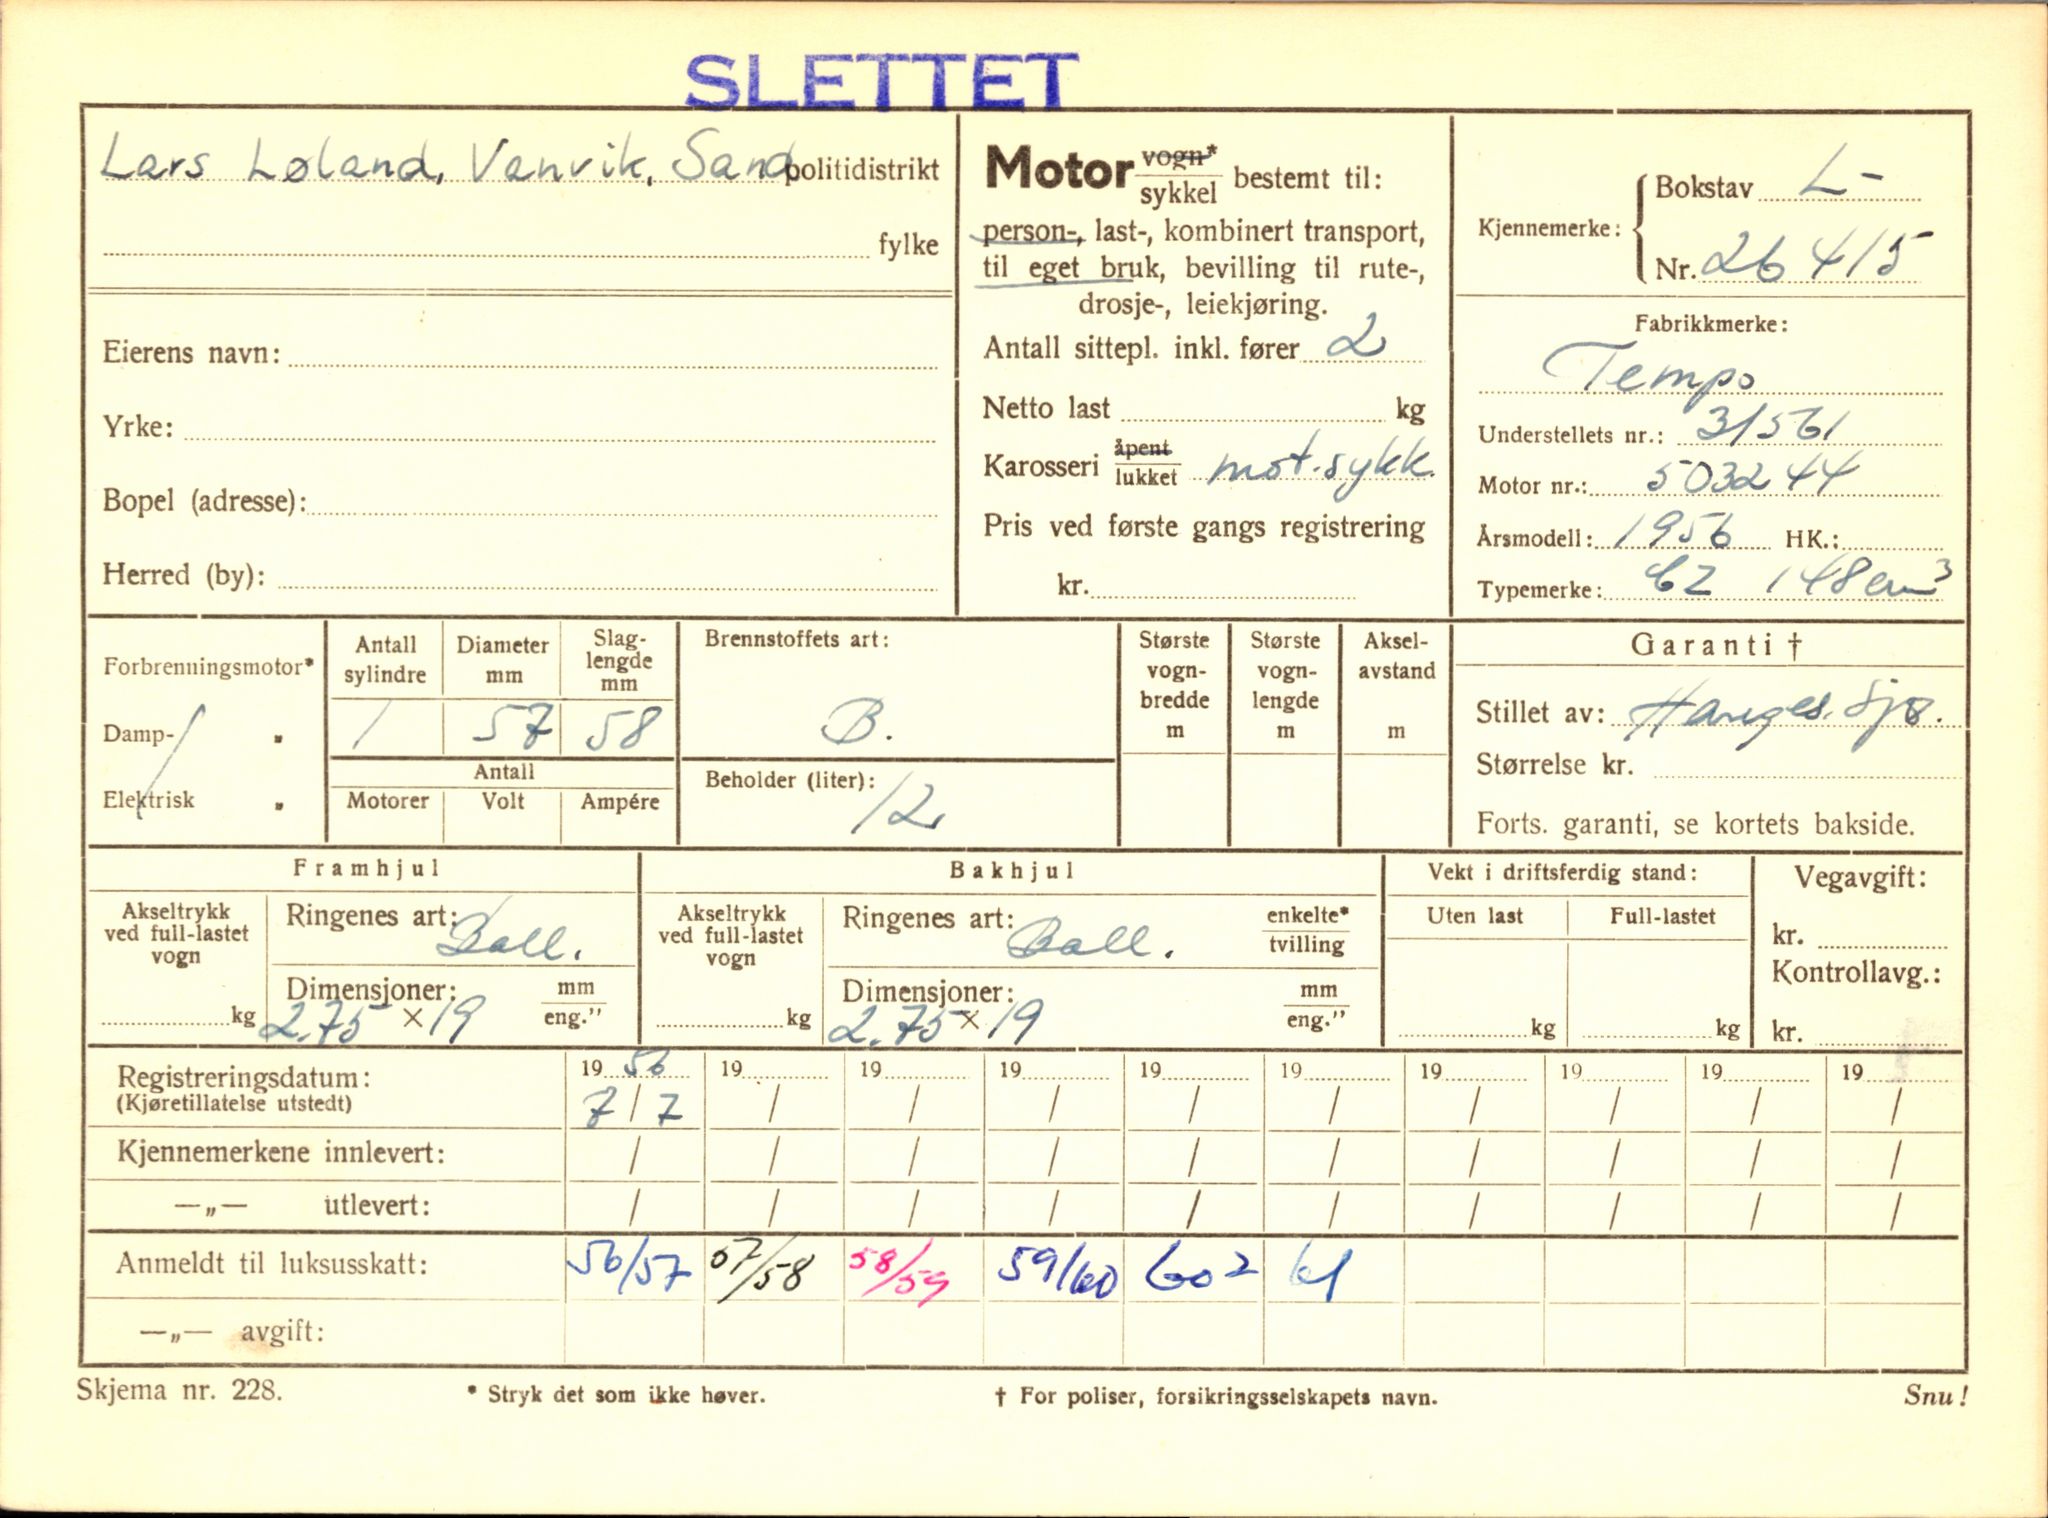 SLETTET
Lars Løland, Vanvik, Sand politidistrikt
fylke
Eierens navn:
Yrke:
Bopel (adresse):
Herred (by):
Motor vogn*/sykkel bestemt til:
person-, last-, kombinert transport,
til eget bruk, bevilling til rute-,
drosje-, leiekjøring.
Antall sittepl. inkl. fører 2
Netto last kg
Karosseri åpent/lukket mot.sykk.
Pris ved første gangs registrering
kr.
Kjennemerke: Bokstav L-
Nr. 26415
Fabrikkmerke:
Tempo
Understellets nr.: 31561
Motor nr.: 5032244
Årsmodell: 1956 HK.:
Typemerke: CZ 148 cm³
Forbrenningsmotor*
Damp- "
Elektrisk "
Antall sylindre
1
Diameter mm
57
Slag-lengde mm
58
Antall
Motorer Volt Ampére
Brennstoffets art:
B.
Beholder (liter):
12
Største vogn-bredde m
Største vogn-lengde m
Aksel-avstand m
Garanti †
Stillet av: Hauges. Sjø.
Størrelse kr.
Forts. garanti, se kortets bakside.
Framhjul
Akseltrykk ved full-lastet vogn
kg
Ringenes art: Ball.
Dimensjoner: mm/eng."
2.75 × 19
Bakhjul
Akseltrykk ved full-lastet vogn
kg
Ringenes art: Ball. enkelte*/tvilling
Dimensjoner: mm/eng."
2.75 × 19
Vekt i driftsferdig stand:
Uten last Full-lastet
kg kg
Vegavgift:
kr.
Kontrollavg.:
kr.
Registreringsdatum: 1956 19 19 19 19 19 19 19 19 19
(Kjøretillatelse utstedt) 7/7 / / / / / / / / /
Kjennemerkene innlevert: / / / / / / / / / /
—„— utlevert: / / / / / / / / / /
Anmeldt til luksusskatt: 56/57 57/58 58/59 59/60 60² 61
—„— avgift:
Skjema nr. 228. * Stryk det som ikke høver. † For poliser, forsikringsselskapets navn. Snu!